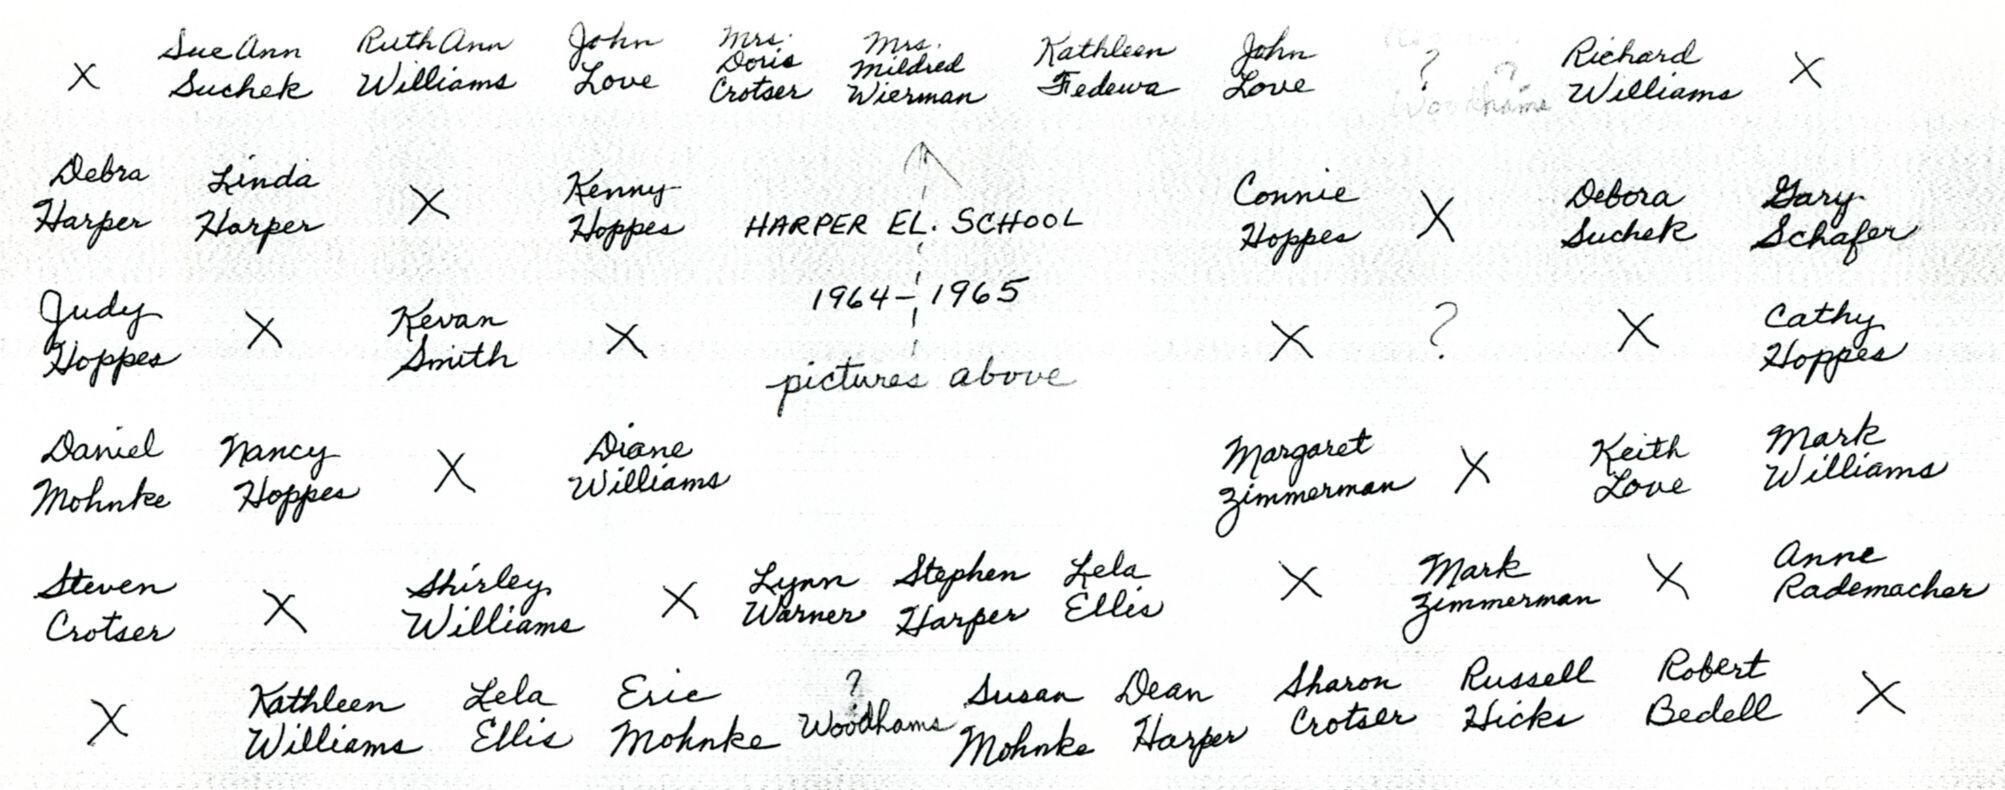 Sue Ann Ruth Ann John Mrs. Mrs. Kathleen John Richard
X Suchek Williams Love Doris Mildred Fedewa Love ? ? Williams X
Crotser Wierman Woodhams
Debra Linda X Kenny Connie X Debora Gary
Harper Harper Hoppes HARPER EL. SCHOOL Hoppes Suchek Schafer
Judy X Kevan X 1964-1965 X ? X Cathy
Hoppes Smith pictures above Hoppes
Daniel Nancy X Diane Margaret X Keith Mark
Mohnke Hoppes Williams Zimmerman Love Williams
Steven X Shirley X Lynn Stephen Lela X Mark X Anne
Crotser Williams Warner Harper Ellis Zimmerman Rademacher
X Kathleen Lela Eric ? Susan Dean Sharon Russell Robert X
Williams Ellis Mohnke Woodhams Mohnke Harper Crotser Hicks Bedell